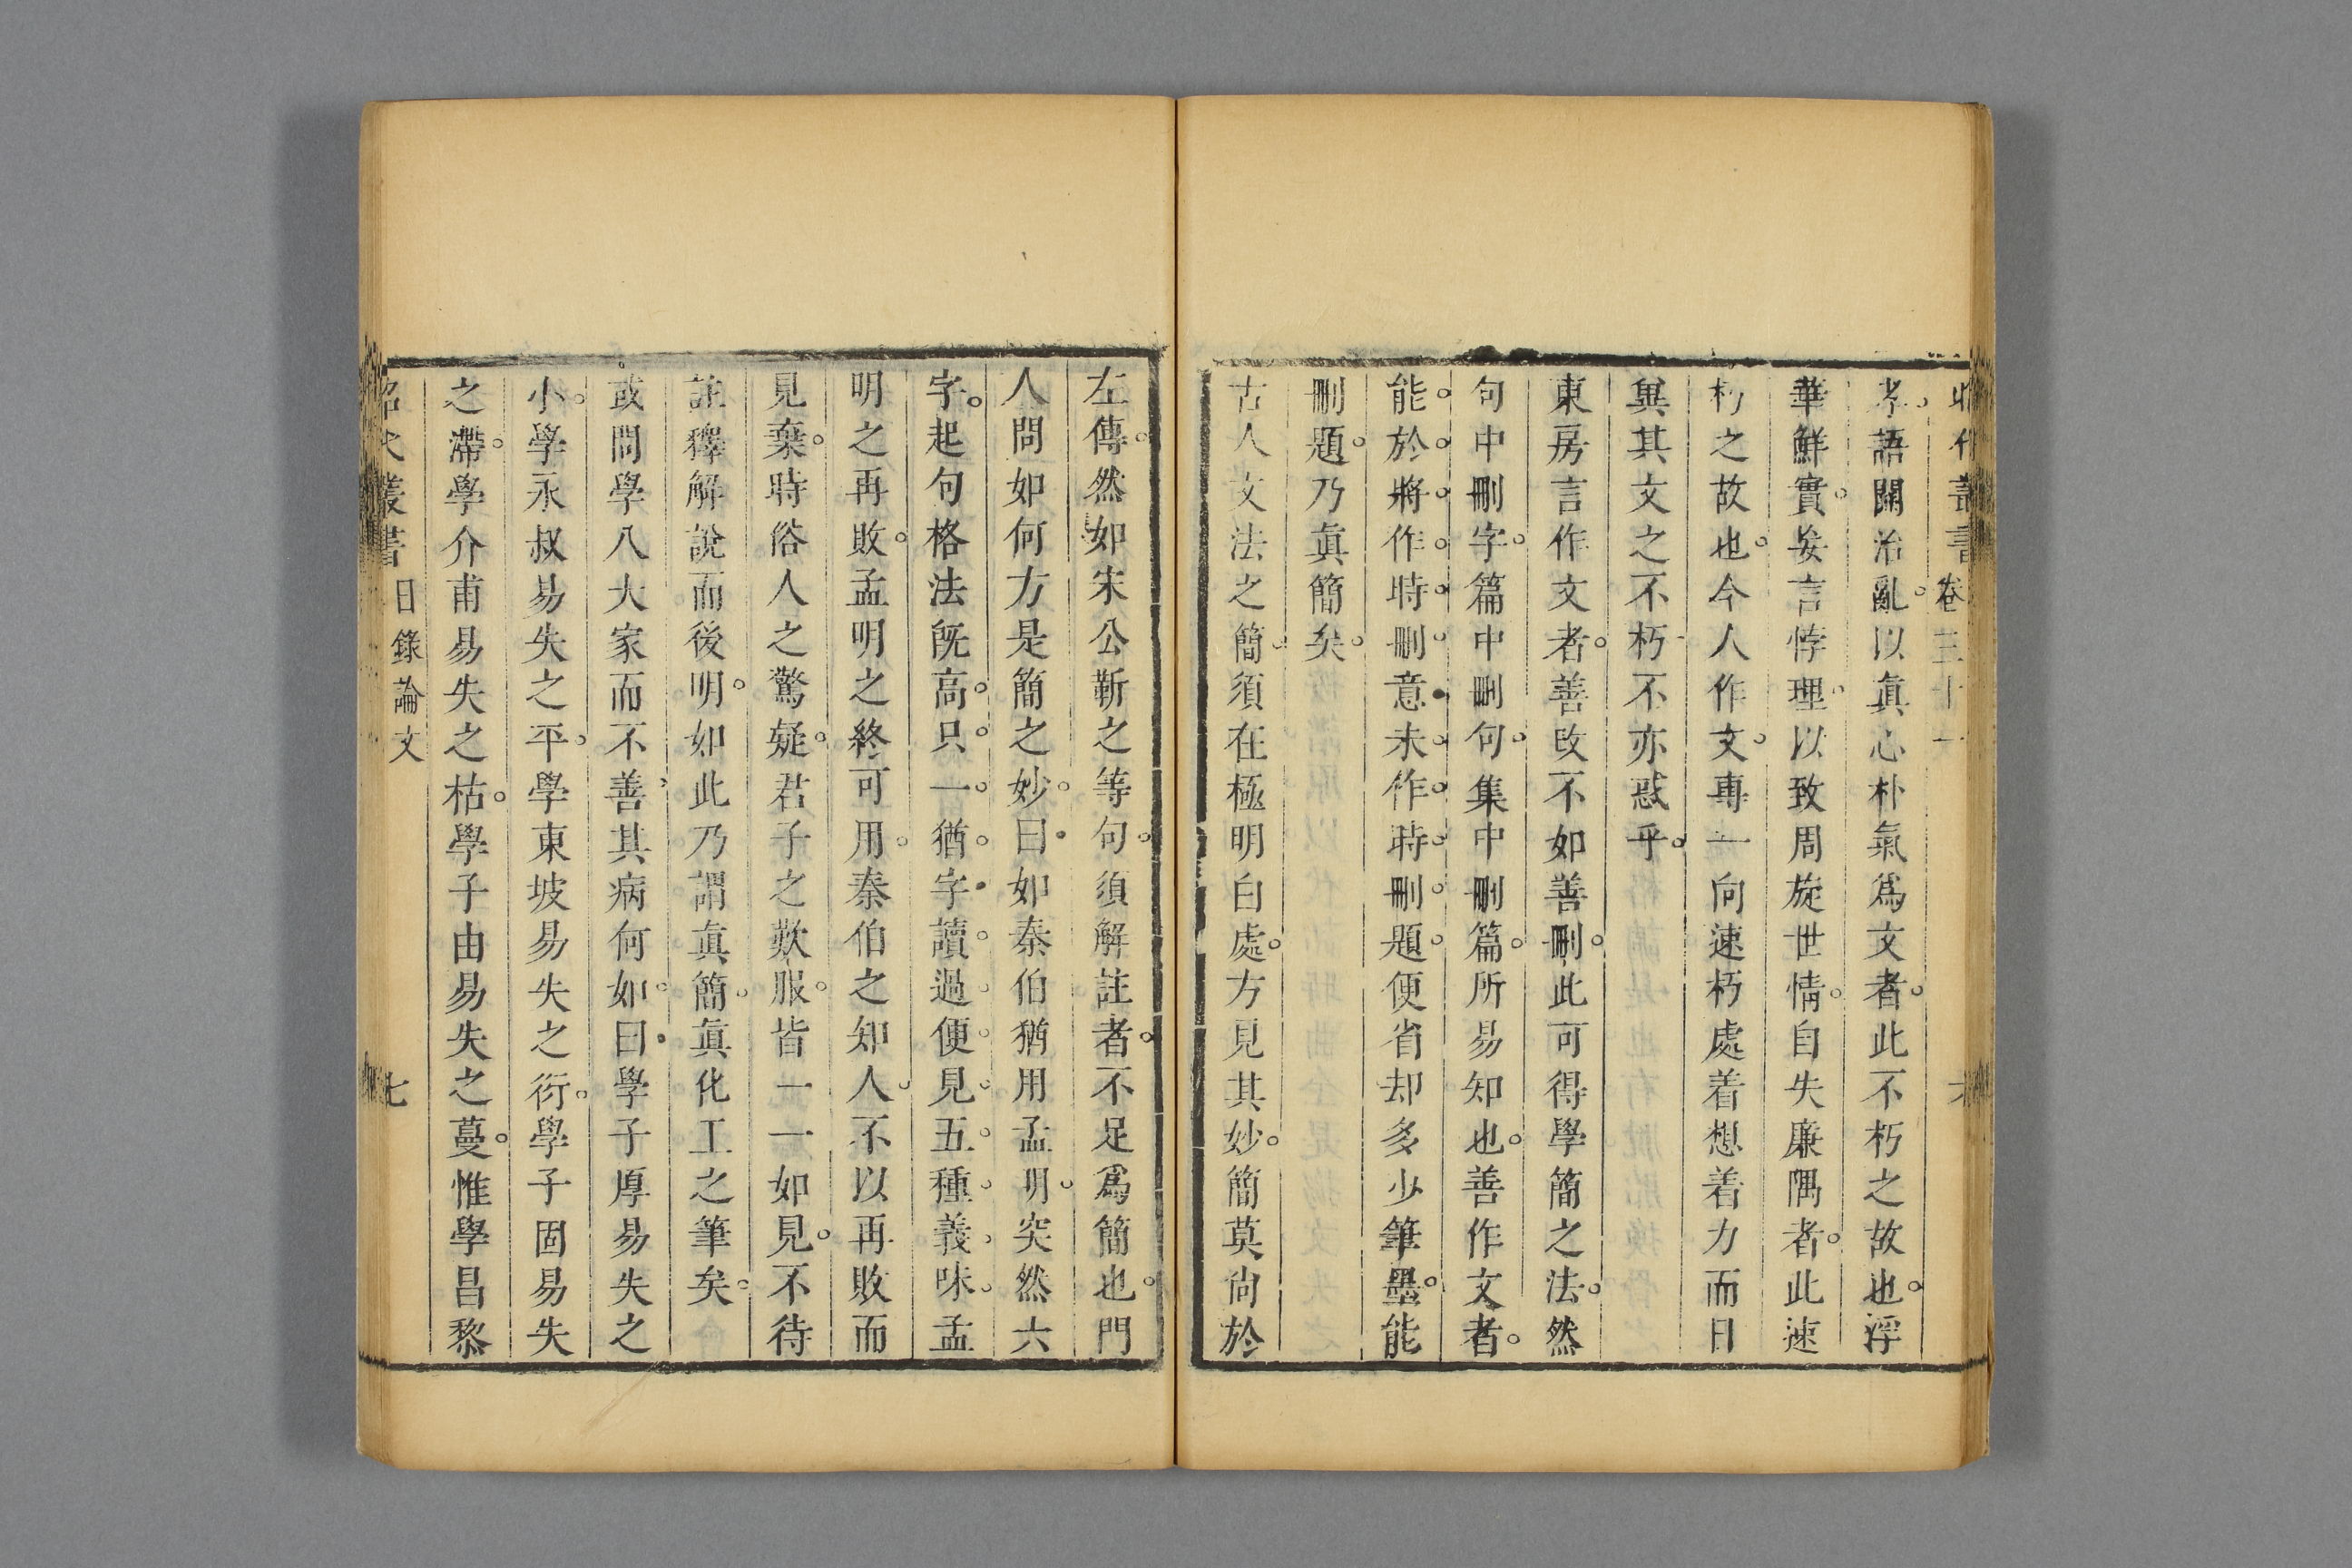 叢書 卷三十一
孝語關治亂以眞心朴氣爲文者此不朽之故也浮
華鮮實妄言悖理以致周旋世情自失廉隅者此速
朽之故也今人作文專一向速朽處着想着力而日
冀其文之不朽不亦惑乎
東房言作文者善改不如善刪此可得學簡之法然
句中刪字篇中刪句集中刪篇所易知也善作文者
能於將作時刪意未作時刪題便省却多少筆墨能
刪題乃眞簡矣
古人文法之簡須在極明白處方見其妙簡莫尙於
左傳然如宋公靳之等句須解註者不足爲簡也門
人問如何方是簡之妙曰如秦伯猶用孟明突然六
字起句格法旣高只一猶字讀過便見五種義味孟
明之再敗孟明之終可用秦伯之知人不以再敗而
見棄時俗人之驚疑君子之歎服皆一一如見不待
註釋解說而後明如此乃謂眞簡眞化工之筆矣
或問學八大家而不善其病何如曰學子厚易失之
小學永叔易失之平學東坡易失之衍學子固易失
之滯學介甫易失之枯學子由易失之蔓惟學昌黎
叢書 日錄論文 七